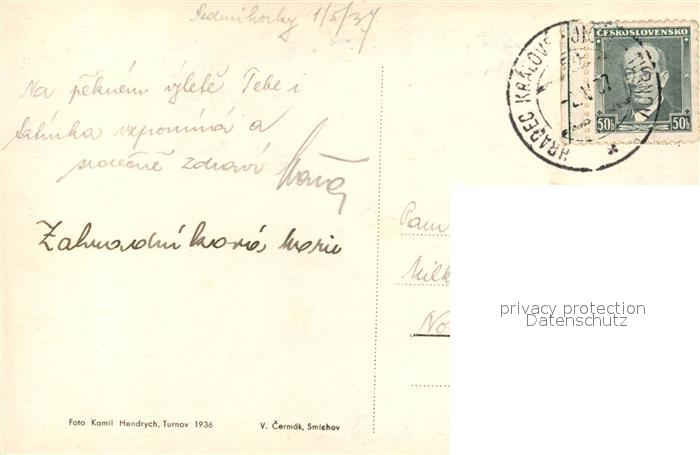 Sedmihorky 1/5/37
Na pěkném výletě Tebe i
tatínka vzpomíná a
srdečně zdraví
Zahradníková Marie
Foto Kamil Hendrych, Turnov 1936
V. Čermák, Smíchov
ČESKOSLOVENSKO
50h 50h
HRADEC KRÁLOVÉ
TURNOV
Pan
Milk
No
privacy protection
Datenschutz